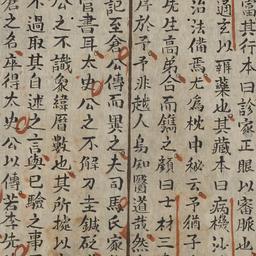 富其行本曰診家正眼以審脈也
通玄以䎡藥也其藏本曰病機沙
治法備焉无為枕中秘云予猶子
先生高弟合而鐫之顧曰士材三
序於予予非越人烏知醫道哉然
記至倉公傳而異之夫司馬氏家
官書耳太史公之不解刀圭鍼砭
公之不識象緯曆數也其所據以
不過取其自述之言與已驗之事
倉之名座得太史公以傳若李先